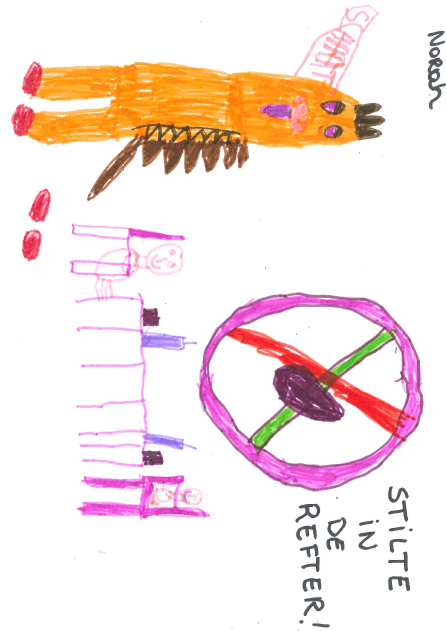 Norah
SCHAT
STILTE
iN
DE
REFTER!